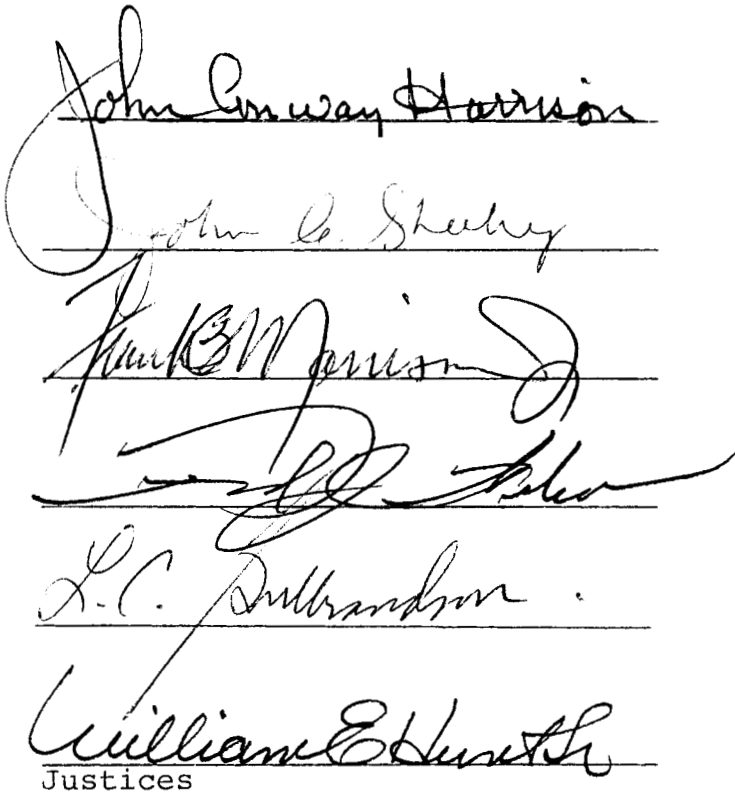 John Conway Harrison
John C. Sheehy
Frank B Morrison Jr
L. C. Gulbrandson
William E Hunt Sr
Justices